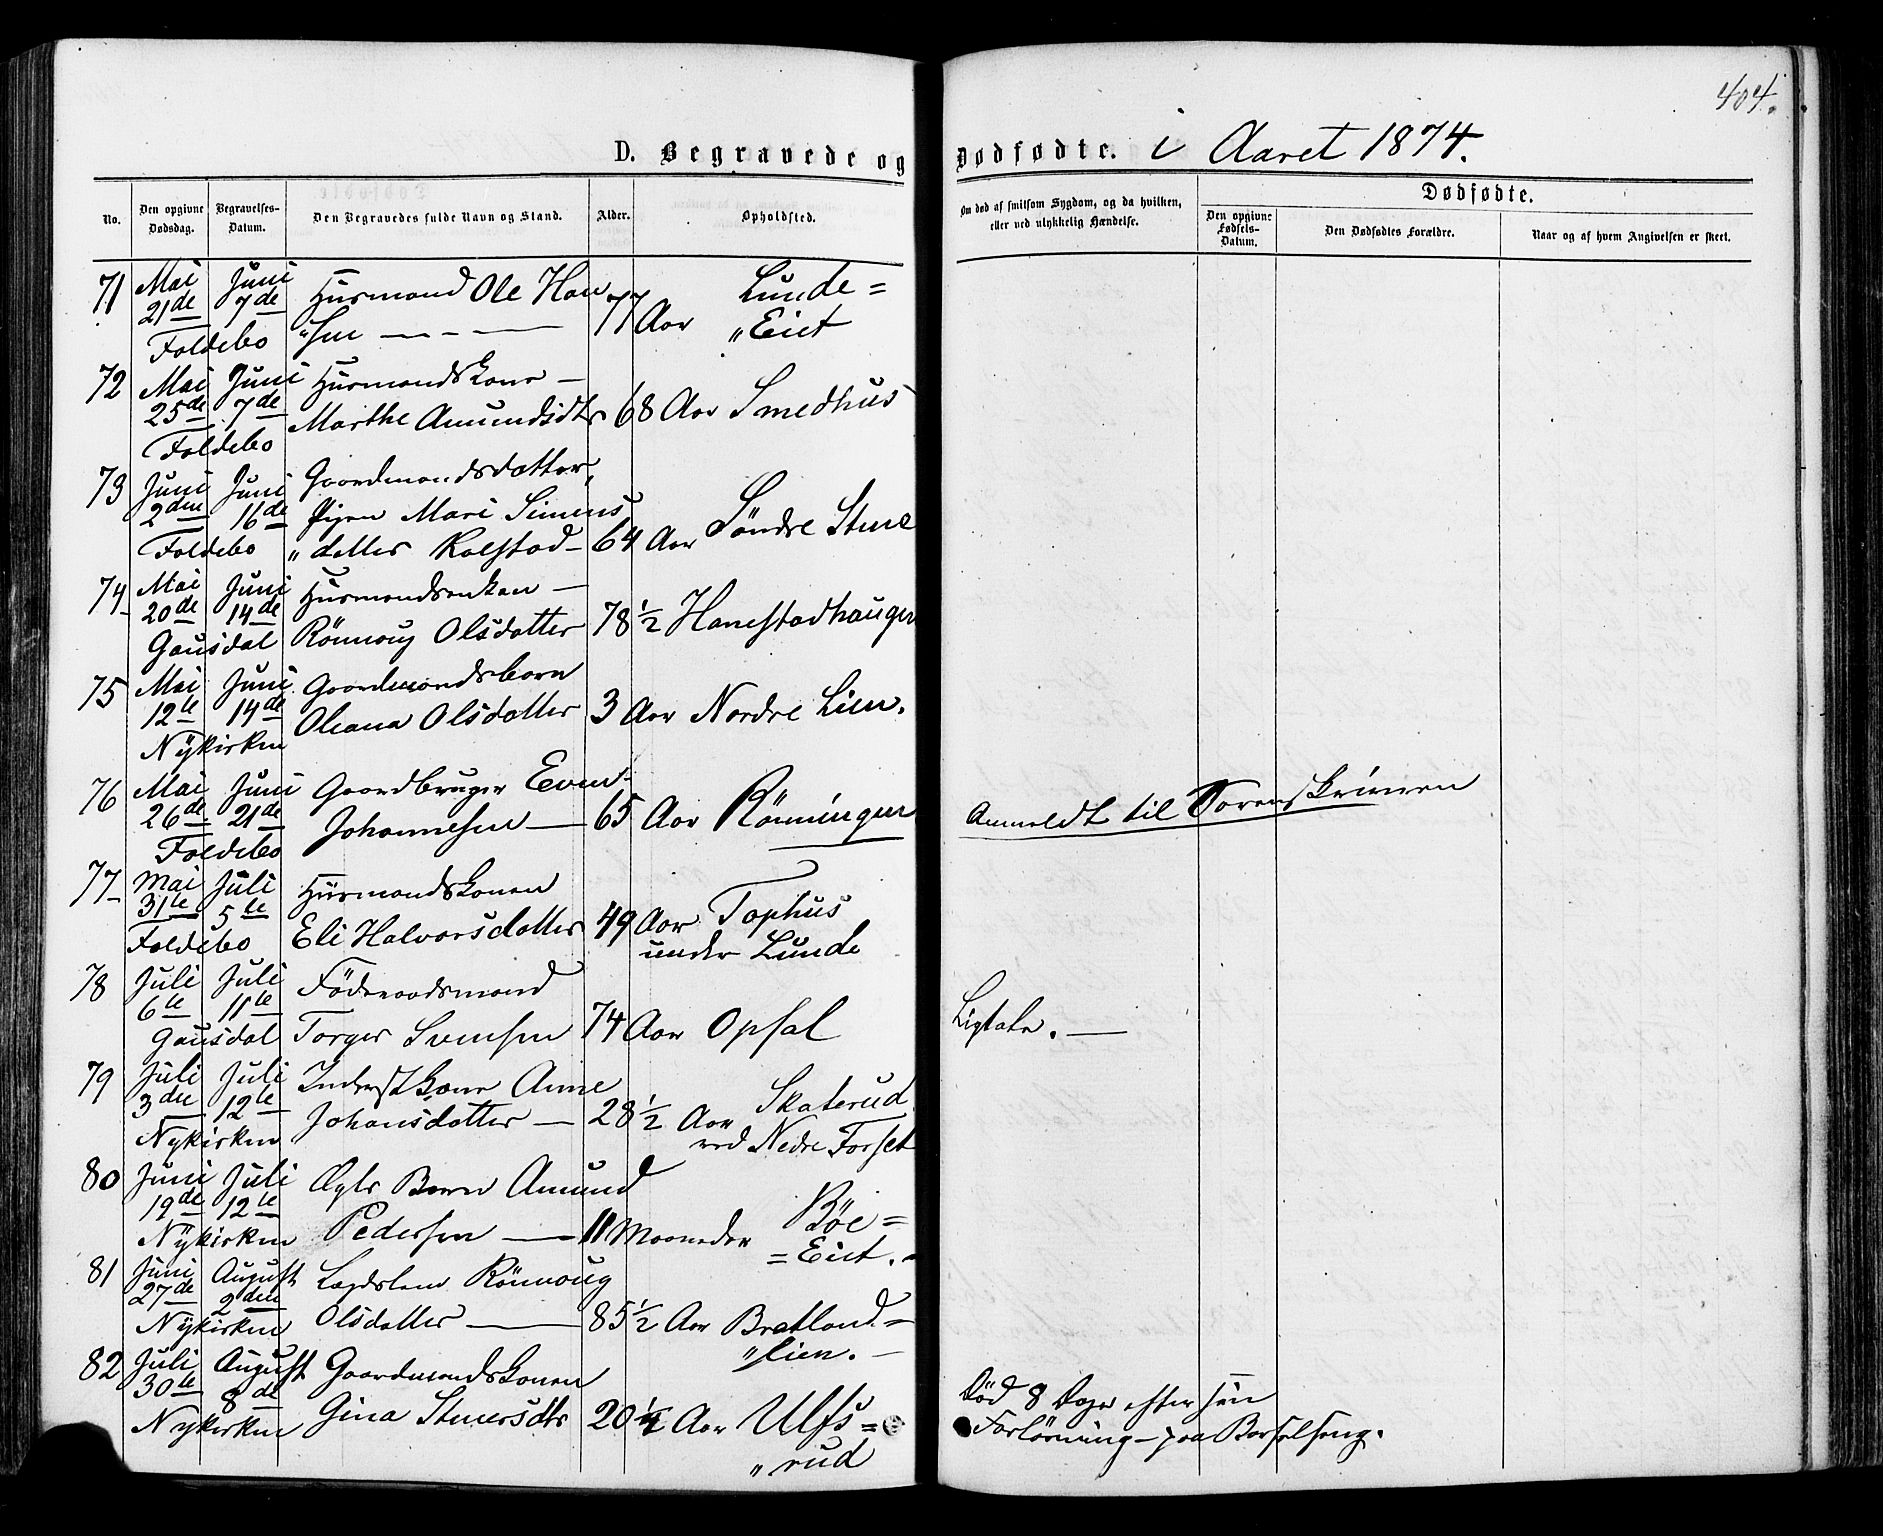 404.
D. Begravede og Dødfødte. i Aaret 1874.
No.
Den opgivne Dødsdag.
Begravelses-Datum.
Den Begravedes fulde Navn og Stand.
Alder.
Opholdsted.
Om død af smitsom Sygdom, og da hvilken, eller ved ulykkelig Hændelse.
Dødfødte.
Den opgivne Fødsels-Datum.
Den Dødfødtes Forældre.
Naar og af hvem Angivelsen er skeet.
71 Mai Juni Husmand Ole Han Lunde=
21de 7de "sen — 77 Aar "Eiet
Foldebo
72 Mai Juni Husmandskone —
25de 7de Marthe Amundsdtr 68 Aar Smedhus
Foldebo
73 Juni Juni Gaardmandsdatter,
2den 16de Mari Simens
Foldebo "datter Kolstad — 64 Aar Söndre Stene
74 Mai Juni Husmandsenken —
20de 14de Rönnoug Olsdatter 78½ Hanestadhaugen
Gausdal
75 Mai Juni Gaardmandsbarn
12te 14de Oleana Olsdatter 3 Aar Nordre Lien.
Nÿkirken
76 Mai Juni Gaardbruger Even
26de 21de Johannesen — 65 Aar Rönningen Anmeldt til Sorenskriveren
Foldebo
77 Mai Juli Husmandskonen
31te 5te Eli Halvorsdatter 49 Aar Tophus
Foldebo under Lunde
78 Juli Juli Föderaadsmand
6te 11te Torger Svensen 74 Aar Opsal Ligtale. —
Gausdal
79 Juli Juli Inderstkone Anne Skaterud
3die 12te Johansdatter — 28½ Aar ved Nedre Forset
Nykirken
80 Juni Juli Ægte Barn Amund Bøe=
19de 12te Pedersen — 11 Maaneder =Eiet. —
Nÿkirken
81 Juni August Lægdslem Rönnoug
27de 2den Olsdatter — 85½ Aar Bratland=
Nÿkirken "lien. —
82 Juli August Gaardmandskonen Död 8 Dage efter sin
30te 8de Gina Stenersdtr 20¼ Aar Ulfs= Forlösning — paa Barselseng.
Nykirken "rud